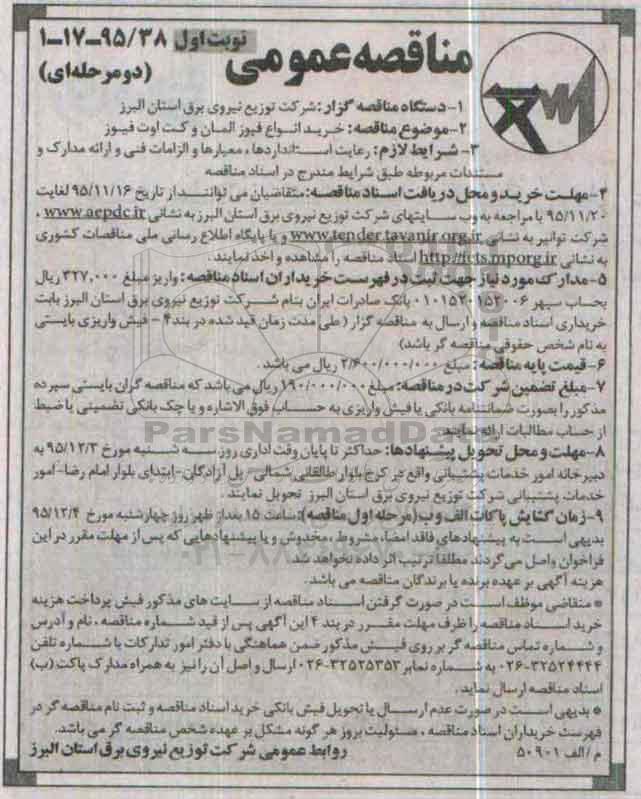 مناقصه عمومی
نوبت اول ۹۵/۳۸-۱۷-۱
(دومرحله‌ای)
۱-دستگاه مناقصه گزار: شرکت توزیع نیروی برق استان البرز
۲-موضوع مناقصه: خرید انواع فیوز المان و کت اوت فیوز
۳- شرایط لازم: رعایت استانداردها، معیارها و الزامات فنی و ارائه مدارک و
مستندات مربوطه طبق شرایط مندرج در اسناد مناقصه
۴-مهلت خرید و محل دریافت اسناد مناقصه: متقاضیان می توانند از تاریخ ۹۵/۱۱/۱۶ لغایت
۹۵/۱۱/۲۰ با مراجعه به وب سایتهای شرکت توزیع نیروی برق استان البرز به نشانی www.aepdc.ir ،
شرکت توانیر به نشانی www.tender.tavanir.org.ir و یا پایگاه اطلاع رسانی ملی مناقصات کشوری
به نشانی http://iets.mporg.ir اسناد مناقصه را مشاهده و اخذ نمایند.
۵-مدارک مورد نیاز جهت ثبت در فهرست خریداران اسناد مناقصه: واریز مبلغ ۳۲۷,۰۰۰ ریال
بحساب سپهر ۰۱۰۱۵۲۰۱۵۲۰۰۶ بانک صادرات ایران بنام شرکت توزیع نیروی برق استان البرز بابت
خریداری اسناد مناقصه و ارسال به مناقصه گزار (طی مدت زمان قید شده در بند۴ - فیش واریزی بایستی
به نام شخص حقوقی مناقصه گر باشد)
۶-قیمت پایه مناقصه: مبلغ ۲/۶۰۰/۰۰۰/۰۰۰ ریال می باشد.
۷-مبلغ تضمین شرکت در مناقصه: مبلغ ۱۹۰/۰۰۰/۰۰۰ ریال می باشد که مناقصه گران بایستی سپرده
مذکور را بصورت ضمانتنامه بانکی یا فیش واریزی به حساب فوق الاشاره و یا چک بانکی تضمینی یا ضبط
از حساب مطالبات ارائه نمایند.
ParsNamadData
۸-مهلت و محل تحویل پیشنهادها: حداکثر تا پایان وقت اداری روز سه شنبه مورخ ۹۵/۱۲/۳ به
دبیرخانه امور خدمات پشتیبانی واقع در کرج بلوار طالقانی شمالی- پل آزادگان-ابتدای بلوار امام رضا-امور
خدمات پشتیبانی شرکت توزیع نیروی برق استان البرز تحویل نمایند.
۹-زمان گشایش پاکات الف و ب(مرحله اول مناقصه): ساعت ۱۵ بعداز ظهر روز چهارشنبه مورخ ۹۵/۱۲/۴
بدیهی است به پیشنهادهای فاقد امضاء، مشروط ، مخدوش و یا پیشنهادهایی که پس از مهلت مقرر در این
فراخوان واصل می گردند مطلقا ترتیب اثر داده نخواهد شد.
هزینه آگهی بر عهده برنده یا برندگان مناقصه می باشد.
* متقاضی موظف است در صورت گرفتن اسناد مناقصه از سایت های مذکور فیش پرداخت هزینه
خرید اسناد مناقصه را ظرف مهلت مقرر در بند ۴ این آگهی پس از قید شماره مناقصه ، نام و آدرس
و شماره تماس مناقصه گر بر روی فیش مذکور ضمن هماهنگی با دفتر امور تدارکات با شماره تلفن
۰۲۶-۳۲۵۲۴۴۴۴ به شماره نمابر ۰۲۶-۳۲۵۲۵۳۵۳ ارسال و اصل آن را نیز به همراه مدارک پاکت (ب)
اسناد مناقصه ارسال نماید.
* بدیهی است در صورت عدم ارسال یا تحویل فیش بانکی خرید اسناد مناقصه و ثبت نام مناقصه گر در
فهرست خریداران اسناد مناقصه ، مسئولیت بروز هر گونه مشکل بر عهده شخص مناقصه گر می باشد.
م /الف ۵۰۹۰۱
روابط عمومی شرکت توزیع نیروی برق استان البرز